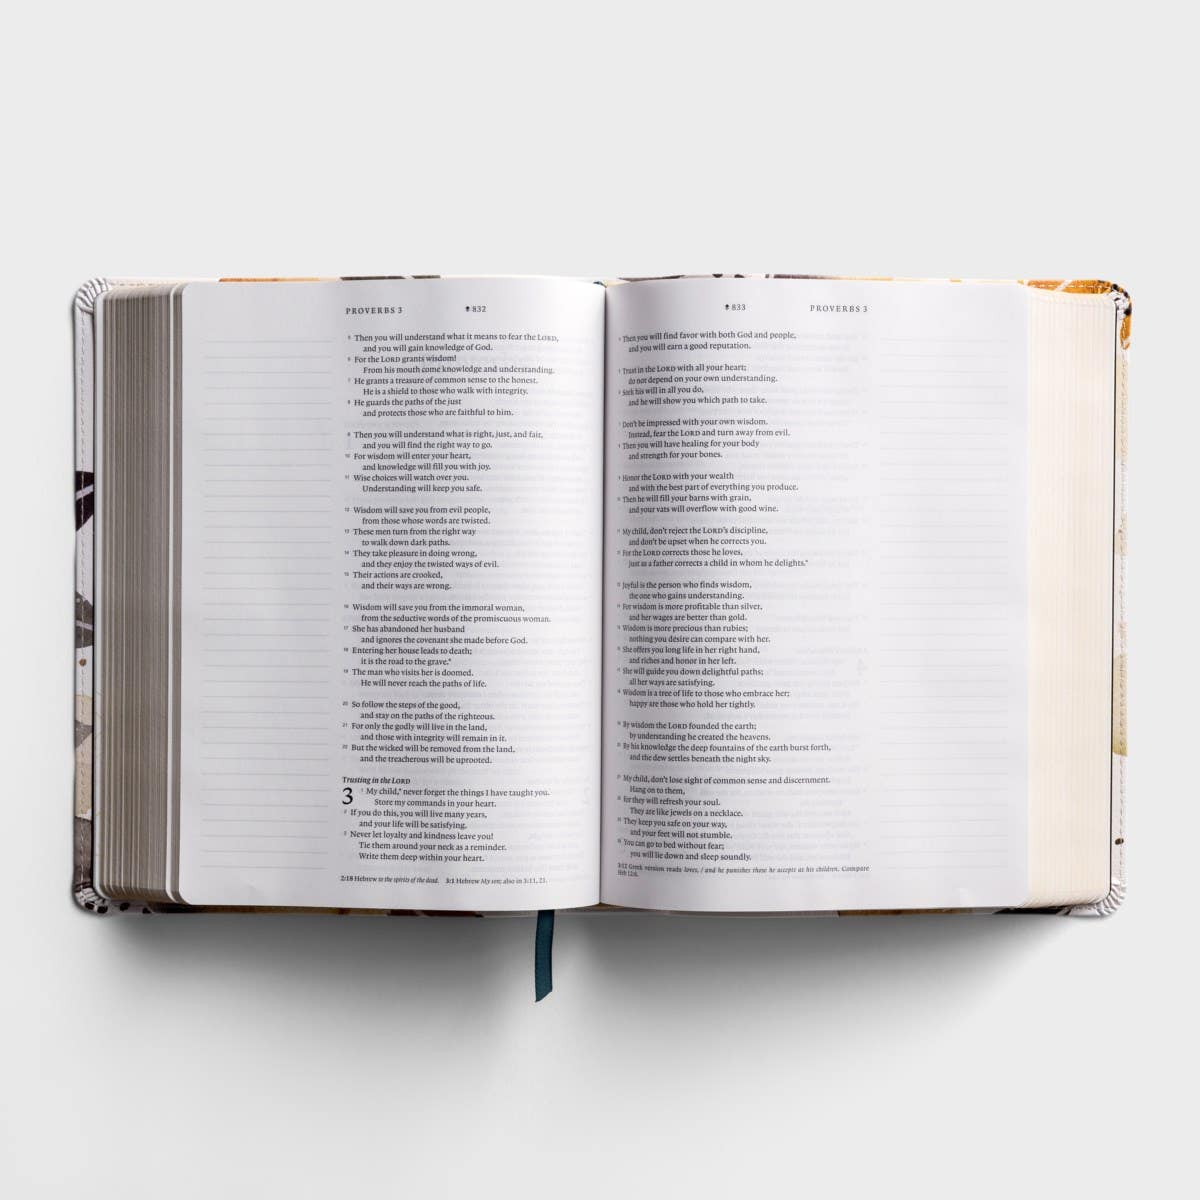 PROVERBS 3 832
5 Then you will understand what it means to fear the LORD,
and you will gain knowledge of God.
6 For the LORD grants wisdom!
From his mouth come knowledge and understanding.
7 He grants a treasure of common sense to the honest.
He is a shield to those who walk with integrity.
8 He guards the paths of the just
and protects those who are faithful to him.
9 Then you will understand what is right, just, and fair,
and you will find the right way to go.
10 For wisdom will enter your heart,
and knowledge will fill you with joy.
11 Wise choices will watch over you.
Understanding will keep you safe.
12 Wisdom will save you from evil people,
from those whose words are twisted.
13 These men turn from the right way
to walk down dark paths.
14 They take pleasure in doing wrong,
and they enjoy the twisted ways of evil.
15 Their actions are crooked,
and their ways are wrong.
16 Wisdom will save you from the immoral woman,
from the seductive words of the promiscuous woman.
17 She has abandoned her husband
and ignores the covenant she made before God.
18 Entering her house leads to death;
it is the road to the grave.*
19 The man who visits her is doomed.
He will never reach the paths of life.
20 So follow the steps of the good,
and stay on the paths of the righteous.
21 For only the godly will live in the land,
and those with integrity will remain in it.
22 But the wicked will be removed from the land,
and the treacherous will be uprooted.
Trusting in the LORD
3 1 My child,* never forget the things I have taught you.
Store my commands in your heart.
2 If you do this, you will live many years,
and your life will be satisfying.
3 Never let loyalty and kindness leave you!
Tie them around your neck as a reminder.
Write them deep within your heart.
2:18 Hebrew to the spirits of the dead. 3:1 Hebrew My son; also in 3:11, 21.
833 PROVERBS 3
4 Then you will find favor with both God and people,
and you will earn a good reputation.
5 Trust in the LORD with all your heart;
do not depend on your own understanding.
6 Seek his will in all you do,
and he will show you which path to take.
7 Don't be impressed with your own wisdom.
Instead, fear the LORD and turn away from evil.
8 Then you will have healing for your body
and strength for your bones.
9 Honor the LORD with your wealth
and with the best part of everything you produce.
10 Then he will fill your barns with grain,
and your vats will overflow with good wine.
11 My child, don't reject the LORD's discipline,
and don't be upset when he corrects you.
12 For the LORD corrects those he loves,
just as a father corrects a child in whom he delights.*
13 Joyful is the person who finds wisdom,
the one who gains understanding.
14 For wisdom is more profitable than silver,
and her wages are better than gold.
15 Wisdom is more precious than rubies;
nothing you desire can compare with her.
16 She offers you long life in her right hand,
and riches and honor in her left.
17 She will guide you down delightful paths;
all her ways are satisfying.
18 Wisdom is a tree of life to those who embrace her;
happy are those who hold her tightly.
19 By wisdom the LORD founded the earth;
by understanding he created the heavens.
20 By his knowledge the deep fountains of the earth burst forth,
and the dew settles beneath the night sky.
21 My child, don't lose sight of common sense and discernment.
Hang on to them,
22 for they will refresh your soul.
They are like jewels on a necklace.
23 They keep you safe on your way,
and your feet will not stumble.
24 You can go to bed without fear;
you will lie down and sleep soundly.
3:12 Greek version reads loves, / and he punishes those he accepts as his children. Compare
Heb 12:6.